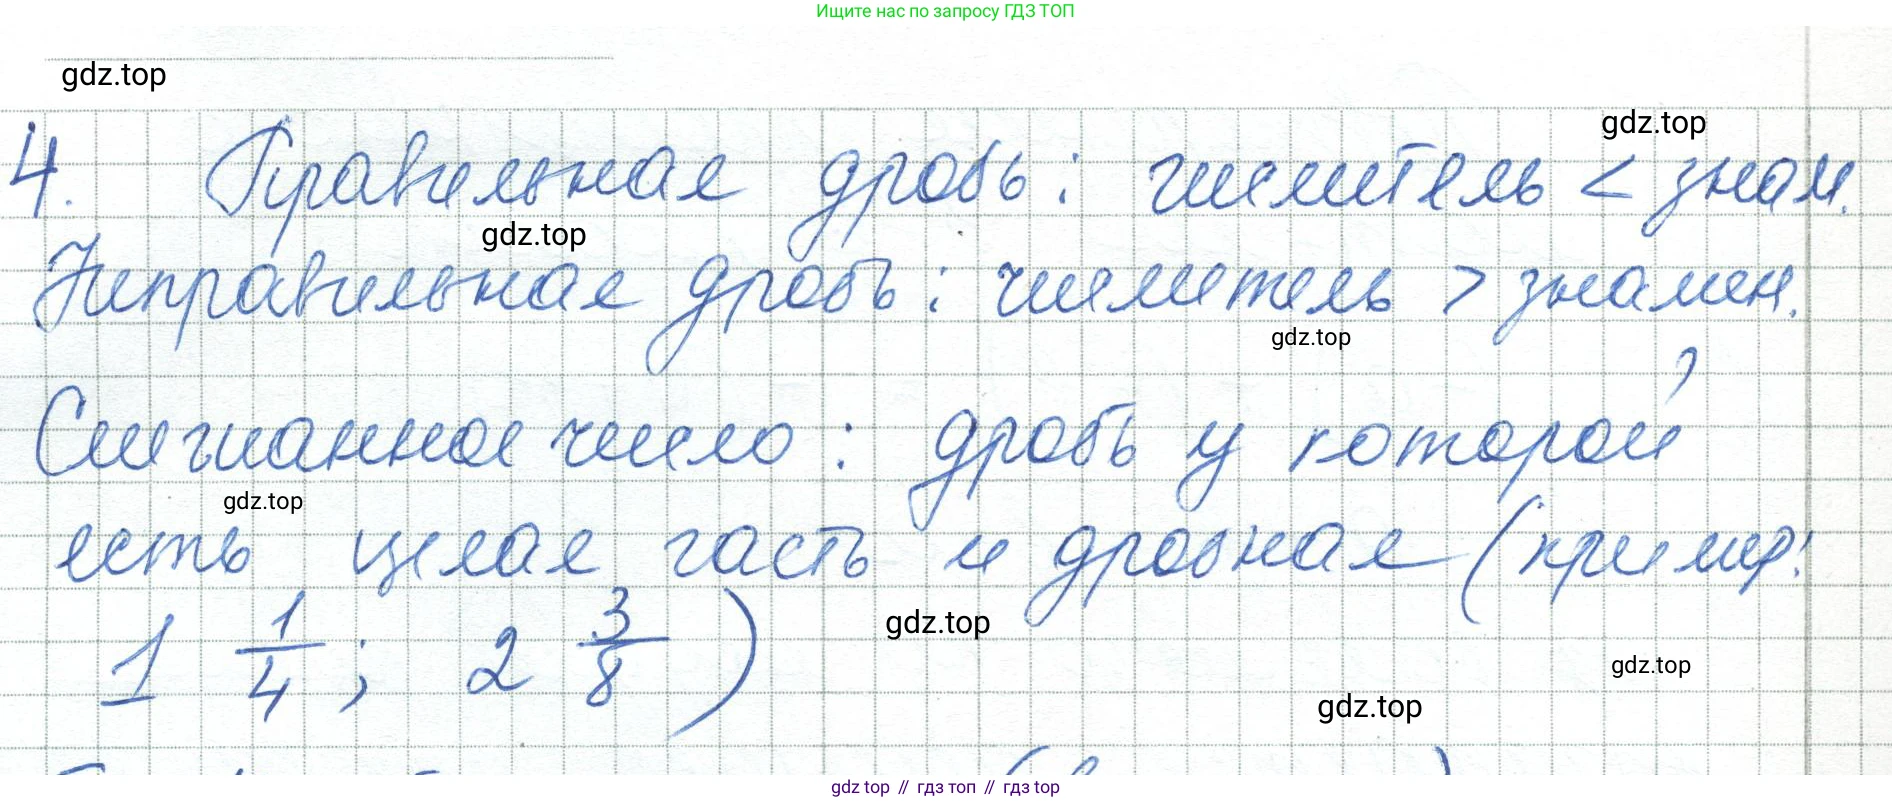 Ищите нас по запросу ГДЗ ТОП
gdz.top
gdz.top
4. Правильная дробь: числитель < знам.
gdz.top
Неправильная дробь: числитель > знамен.
gdz.top
Смешанное число: дробь у которой
gdz.top
есть целая часть и дробная (пример:
1 1/4; 2 3/8)
gdz.top
gdz.top
gdz.top
gdz top // гдз топ // gdz top